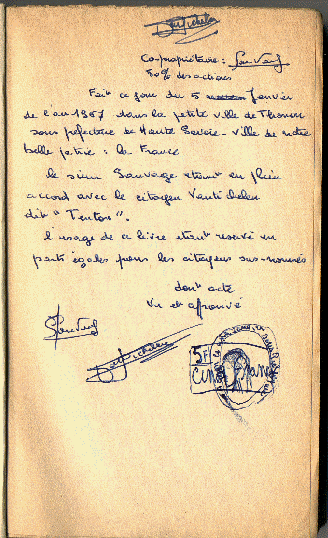 Vantichelen
Co-propriétaire : Sauvage
50% des actions
Fait ce jour du 5 Janvier
de l'an 1967 dans la petite ville de Thonon
sous préfecture de Haute Savoie - ville de notre
belle patrie : la France
le sieur Sauvage étant en plein
accord avec le citoyen Vantichelen
dit "Tonton".
l'usage de ce livre étant reservé en
parts égales pour les citoyens sus-nommés
dont acte
Vu et approuvé
5F
Cinq Francs